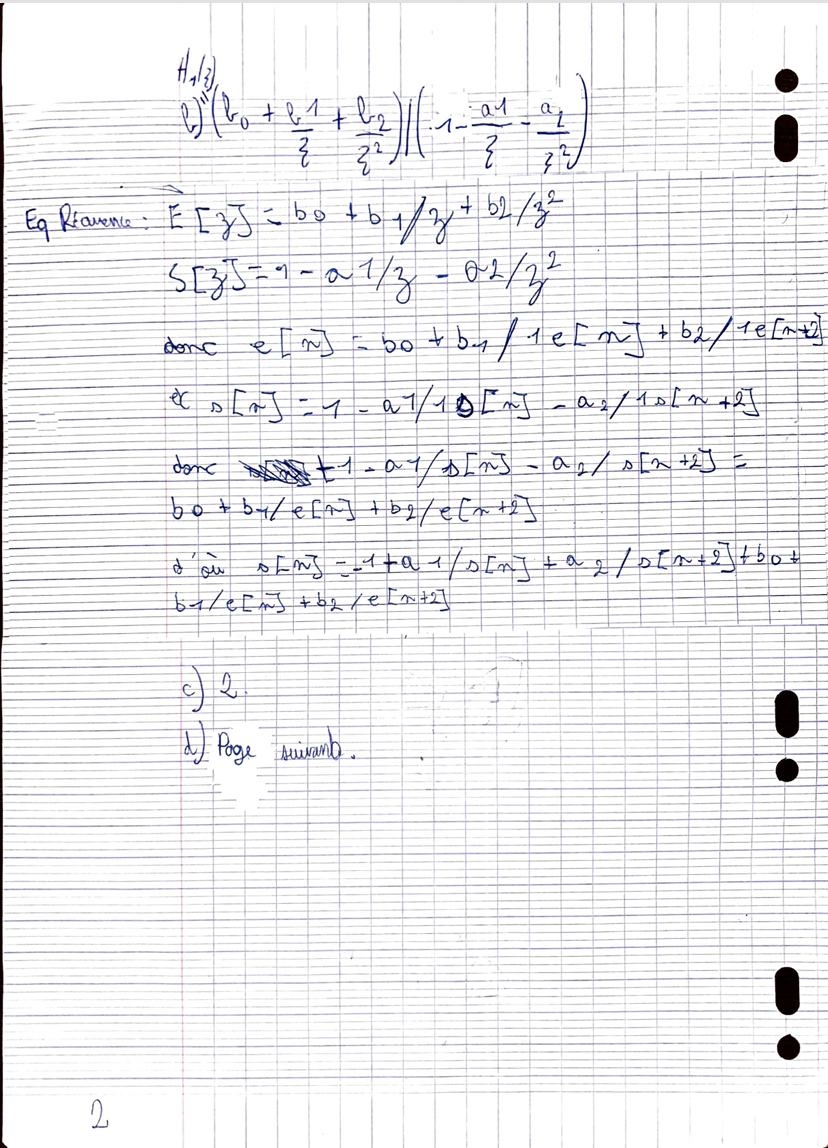 H₁(z)
b) " (b₀ + b1/z + b₂/z²) / (1 - a1/z - a₂/z²)
Eq Récurrence : E[z] = b0 + b1/z + b2/z²
S[z] = 1 - a1/z - a2/z²
donc e[n] = b0 + b1/1e[n] + b2/1e[n+2]
et s[n] = 1 - a1/1s[n] - a2/1s[n+2]
donc +1 - a1/s[n] - a2/s[n+2] =
b0 + b1/e[n] + b2/e[n+2]
d'où s[n] = -1 + a1/s[n] + a2/s[n+2] + b0 +
b1/e[n] + b2/e[n+2]
c) 2.
d) Page suivante.
2